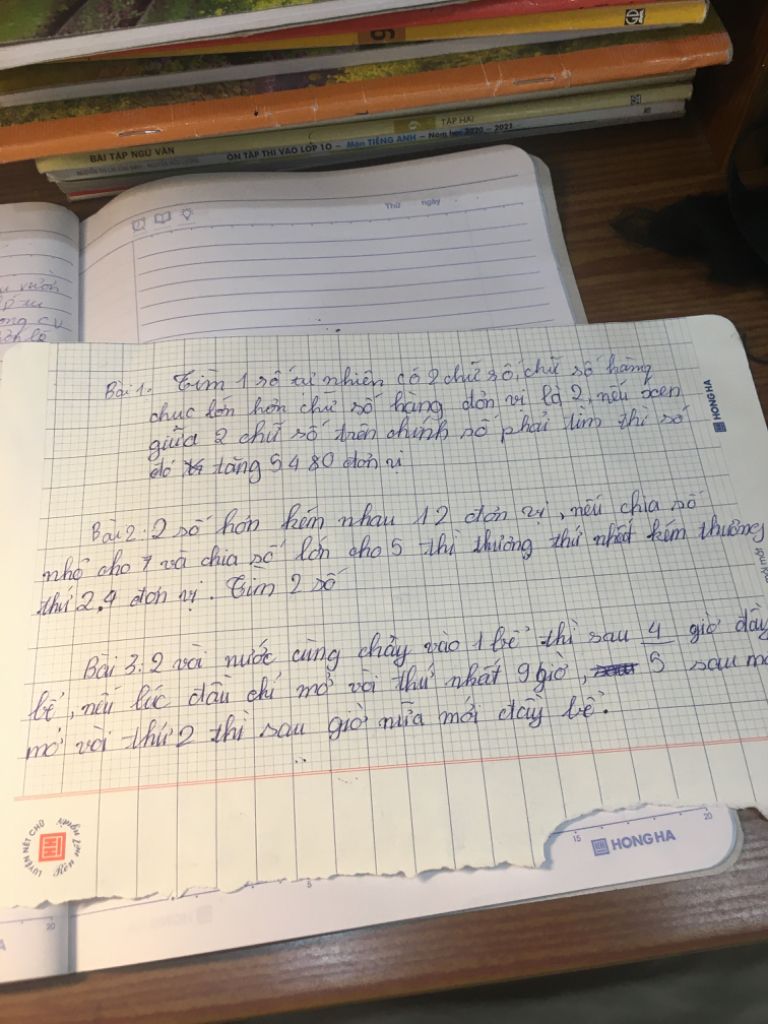 BÀI TẬP NGỮ VĂN
TẬP HAI
ÔN TẬP THI VÀO LỚP 10 - Môn TIẾNG ANH - Năm học 2020 - 2021
Thứ ngày
Bài 1. Tìm 1 số tự nhiên có 2 chữ số, chữ số hàng
chục lớn hơn chữ số hàng đơn vị là 2, nếu xen
giữa 2 chữ số trên chính số phải tìm thì số
đó tăng 5480 đơn vị
Bài 2: 2 số hơn kém nhau 12 đơn vị, nếu chia số
nhỏ cho 7 và chia số lớn cho 5 thì thương thứ nhất kém thương
thứ 2, 4 đơn vị. Tìm 2 số
Bài 3: 2 vòi nước cùng chảy vào 1 bể thì sau 4/5 giờ đầy
bể, nếu lúc đầu chỉ mở vòi thứ nhất 9 giờ, sau
mở vòi thứ 2 thì sau giờ nữa mới đầy bể.
HONG HA
LUYỆN NÉT CHỮ
HONG HA
15
20
5
20